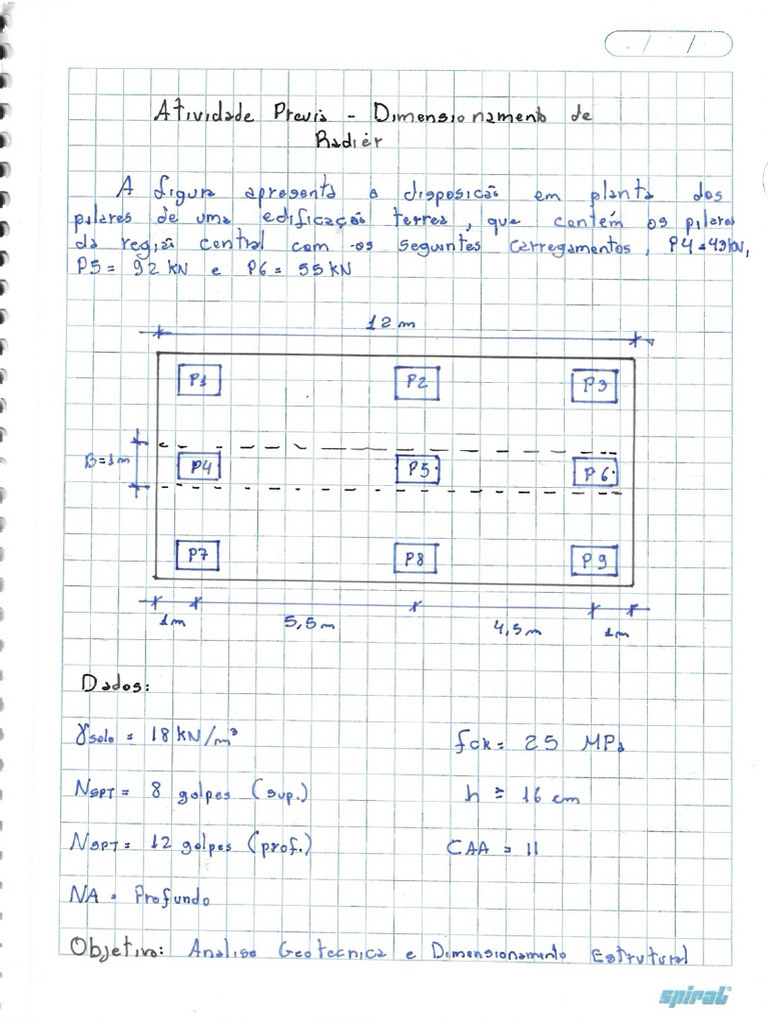 Atividade Previa - Dimensionamento de
Radiér
A figura apresenta a disposição em planta dos
pilares de uma edificação terrea, que contém os pilares
da região central com os seguintes carregamentos, P4=43kN,
P5= 92 KN e P6= 55 KN
12 m
P1 P2 P3
B=1m
P4 P5 P6
P7 P8 P9
1m 5,5m 4,5m 1m
Dados:
γsolo = 18 KN/m³ fck= 25 MPa
NSPT= 8 golpes (sup.) h = 16 cm
NSPT= 12 golpes (prof.) CAA = II
NA = Profundo
Objetivo: Analise Geotecnica e Dimensionamento Estrutural
spiral